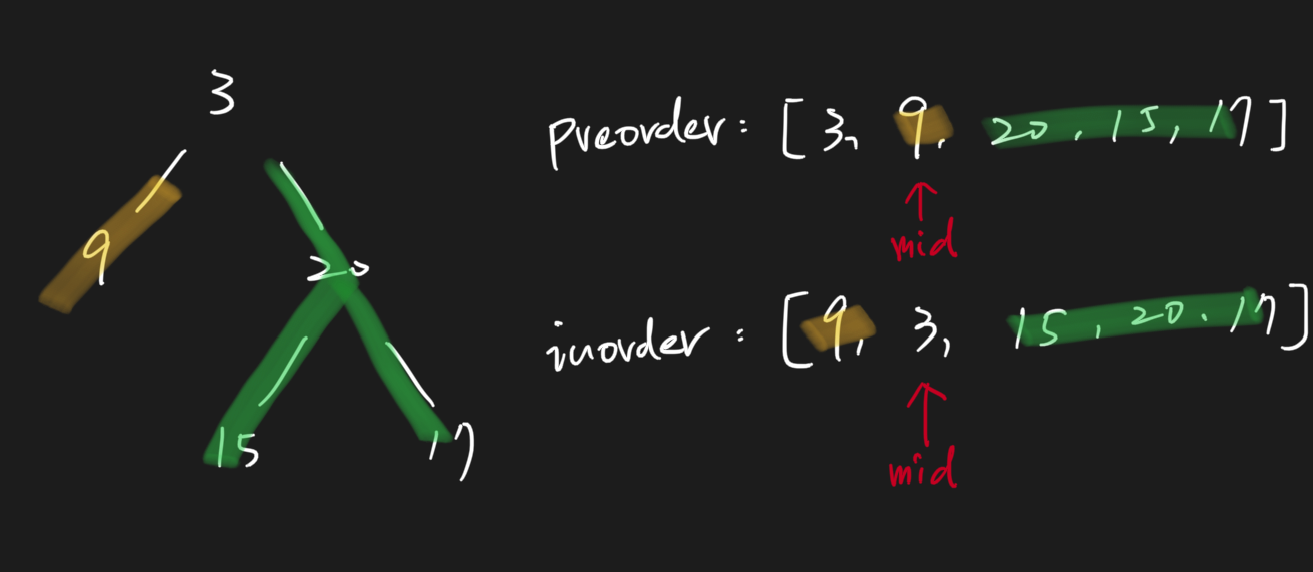 3
9
20
15 17
preorder: [3, 9, 20, 15, 17]
mid
inorder: [9, 3, 15, 20, 17]
mid